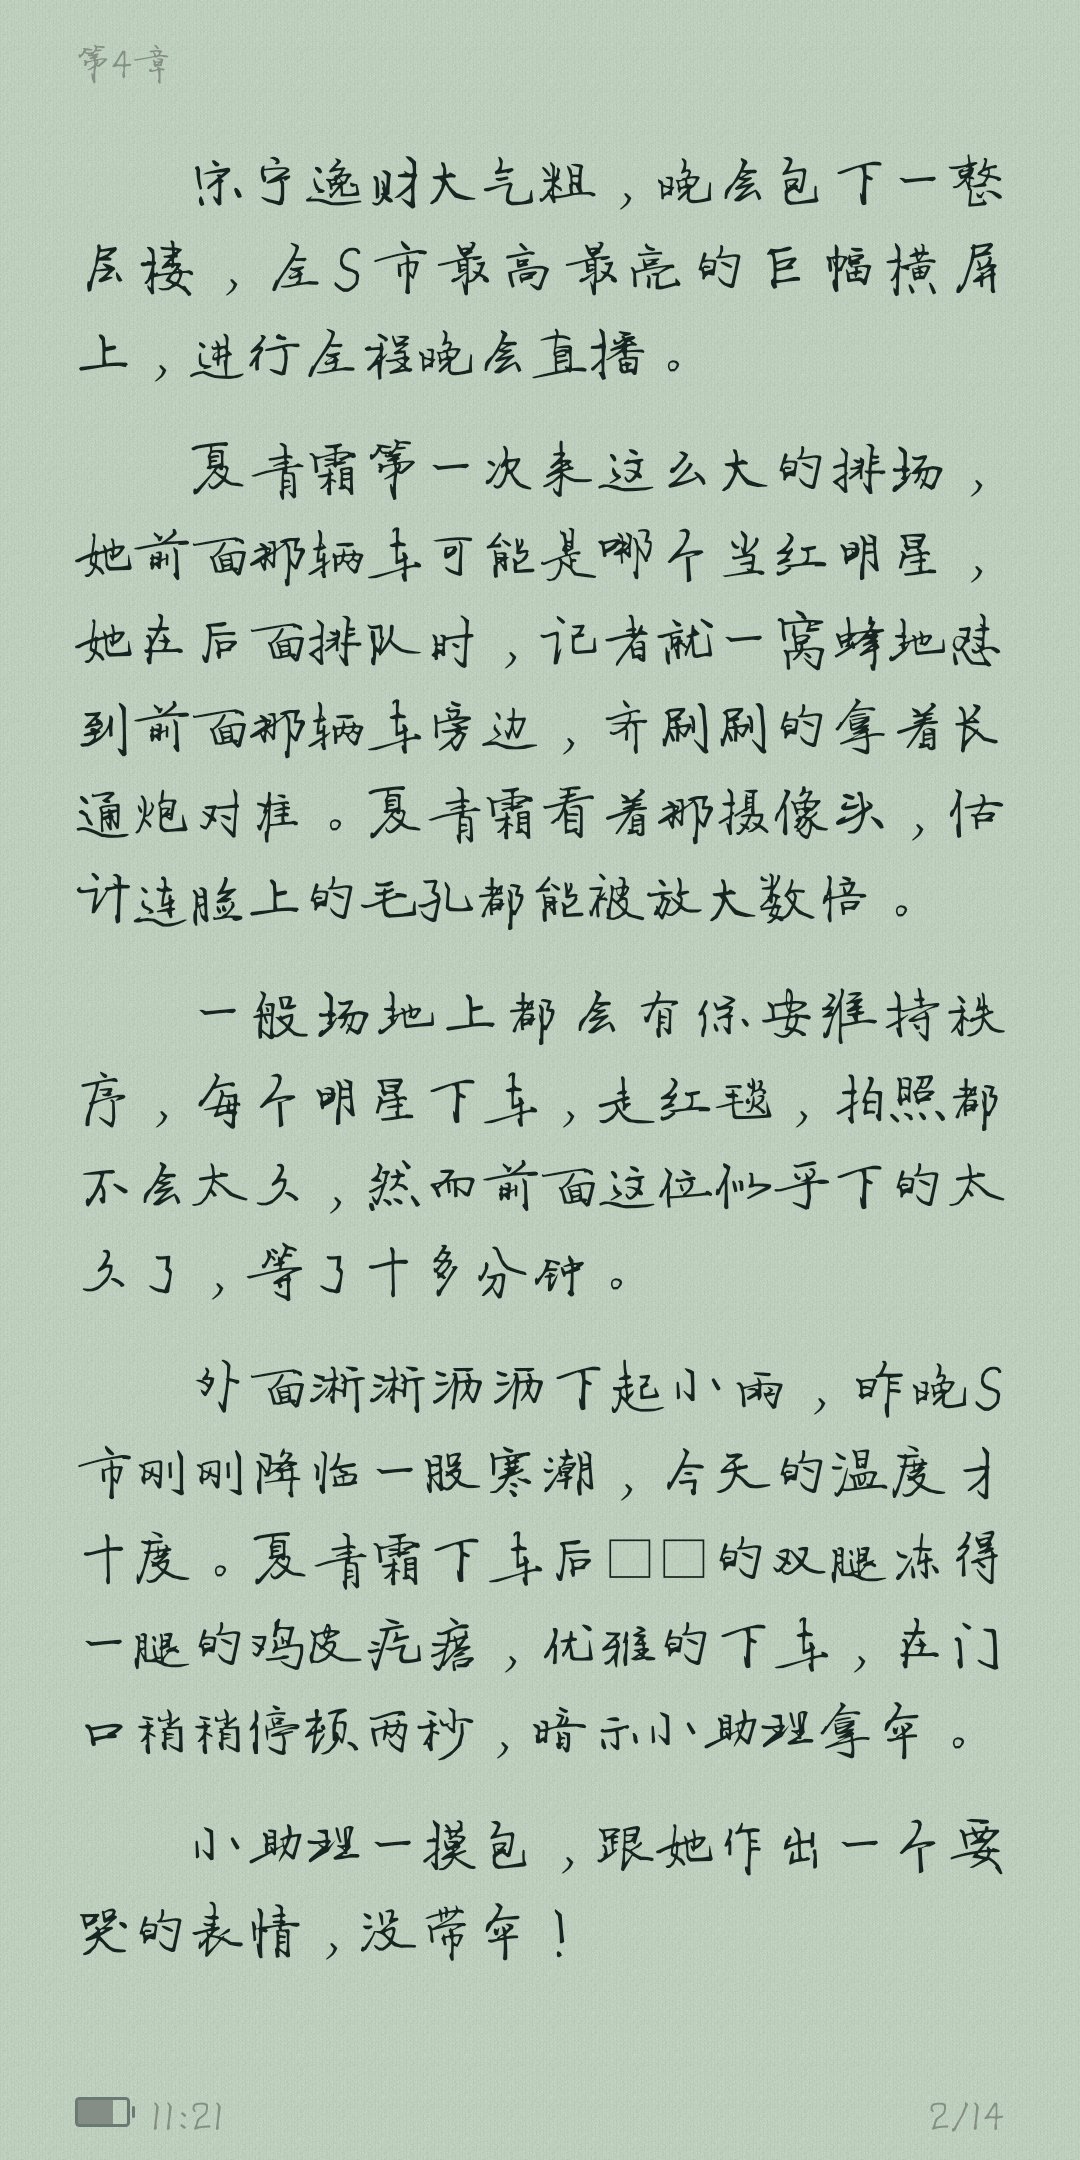 第4章
宋宁逸财大气粗，晚会包下一整
层楼，全S市最高最亮的巨幅横屏
上，进行全程晚会直播。
夏青霜第一次来这么大的排场，
她前面那辆车可能是哪个当红明星，
她在后面排队时，记者就一窝蜂地怼
到前面那辆车旁边，齐刷刷的拿着长
通炮对准。夏青霜看着那摄像头，估
计连脸上的毛孔都能被放大数倍。
一般场地上都会有保安维持秩
序，每个明星下车，走红毯，拍照都
不会太久，然而前面这位似乎下的太
久了，等了十多分钟。
外面淅淅沥沥下起小雨，昨晚S
市刚刚降临一股寒潮，今天的温度才
十度。夏青霜下车后□□的双腿冻得
一腿的鸡皮疙瘩，优雅的下车，在门
口稍稍停顿两秒，暗示小助理拿伞。
小助理一摸包，跟她作出一个要
哭的表情，没带伞！
11:21
2/14